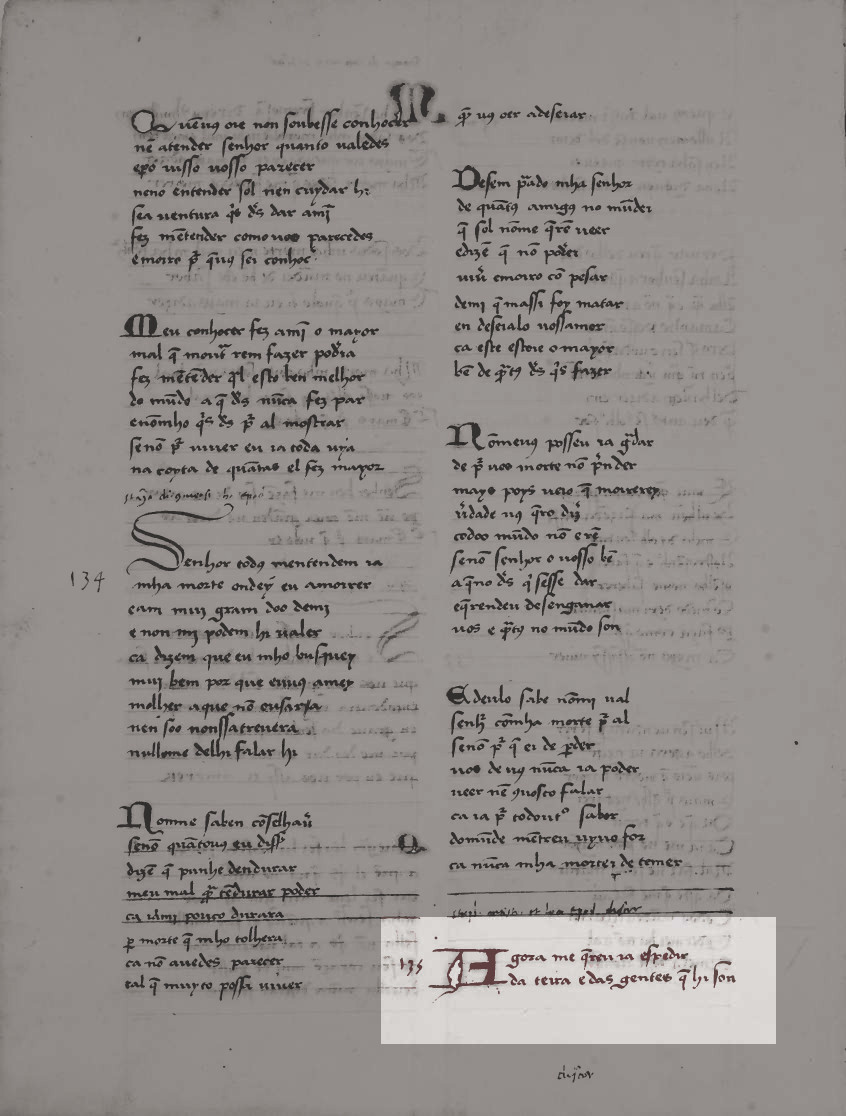 Quẽuus oie non soubesse conhocer
nẽ atender senhor quanto valedes
epõ visso vosso parecer
nenõ entender sol nen cuydar hi
sea ventura q̃s d̃s dar amĩ
fez mẽtender como uos parecedes
emoiro p̃ q̃uus sei conhoc̃
Meu conhocer fez amĩ o mayor
mal q̃ mout̃ rem fazer podia
fez mẽtẽder q̃l esto ben melhor
do mũdo aq̃ d̃s nũca fez par
enõmho q̃s d̃s p̃ al mostrar
se nõ p̃ viuer eu ia toda uya
na coyta de quãtas el fez mayor
134
Senhor todus mentendem ia
mha morte ondey eu amoirer
eam mui gram doo demi
e non mi podem hi ualer
ca dizem que eu mho busquey
mui bem por que euuus amey
molher aque nõ eusaria
nen soo nonssatreuera
nullome delhi falar hi
Nomme saben cõselhar
senõ quãtouus eu diss
dizẽ q̃ punhe dendurar
meu mal q̃ tẽdurar poder
ca iami pouco durara
p̃ morte q̃ mho tolhera
ca nõ auedes parecer
tal q̃ muyto possa uiuer
q̃ uus oer adeseiar
Desem p̃ado mha senhor
de quãt9 amigus no mũdei
q̃ sol nõme q̃rẽ ueer
edizẽ q̃ nõ poder
uiũ emoiro cõ pesar
demi q̃massi foy matar
en deseialo uossamor
ca este estoie o mayor
bẽ de q̃t9 d̃s q̃s fazer
Nõmeuus posseu ia g̃dar
de p̃ uos morte nõ p̃nder
mays poys ueio q̃ moirerey
ṽdade uus q̃ro diz̃
todoo mũdo nõ erẽ
senõ senhor o uosso bẽ
aq̃no d̃s q̃sesse dar
eq̃rendeu desenganar
uos e q̃t9 no mũdo son
Edeulo sabe nõmi ual
senh̃ cõmha morte p̃ al
senõ p̃ q̃ ei de p̃der
uos de uus nũca ia poder
ueer nẽ 9uosco falar
ca ia p̃ todouto saber
domũde mẽtreu uyuo for
ca nũca mha mortei de temer
135
Agora me q̃reu ia espedir
da terra e das gentes q̃ hi son